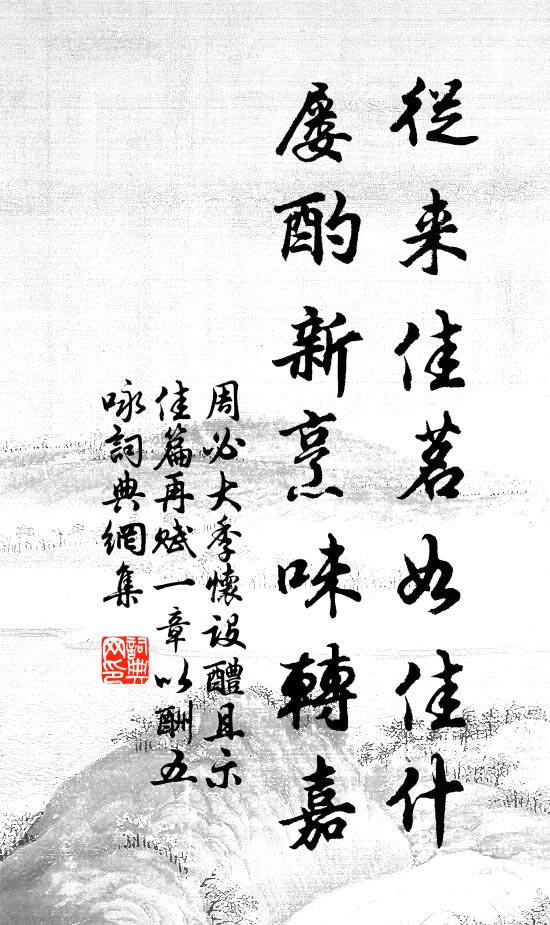 從来佳茗如佳什
屡酌新烹味轉嘉
周必大季懷設醴且示
佳篇再賦一章以酬五
咏詞典網集
詞典
网印